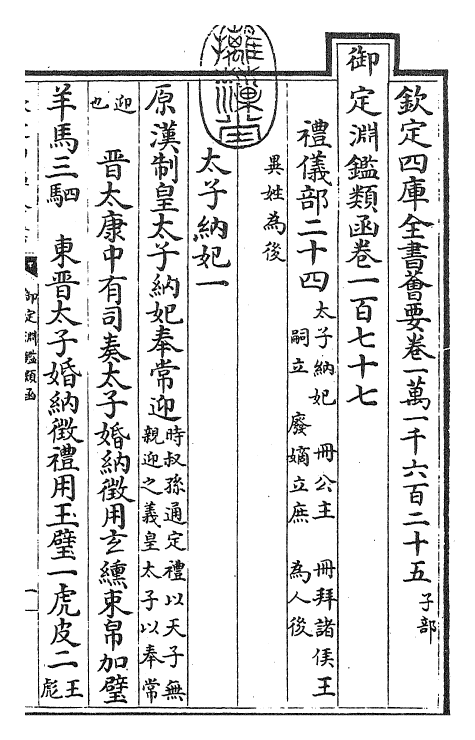 欽定四庫全書薈要卷一萬一千六百二十五 子部
御定淵鑑類函卷一百七十七
禮儀部二十四 太子納妃 冊公主 冊拜諸侯王
嗣立 廢嫡立庶 為人後
異姓為後
太子納妃一
原漢制皇太子納妃奉常迎 時叔孫通定禮以天子無
親迎之義皇太子以奉常
迎也
晉太康中有司奏太子婚納徵用玄纁束帛加璧
羊馬三駟 東晉太子婚納徵禮用玉璧一虎皮二 王彪
御定淵鑑類函
一